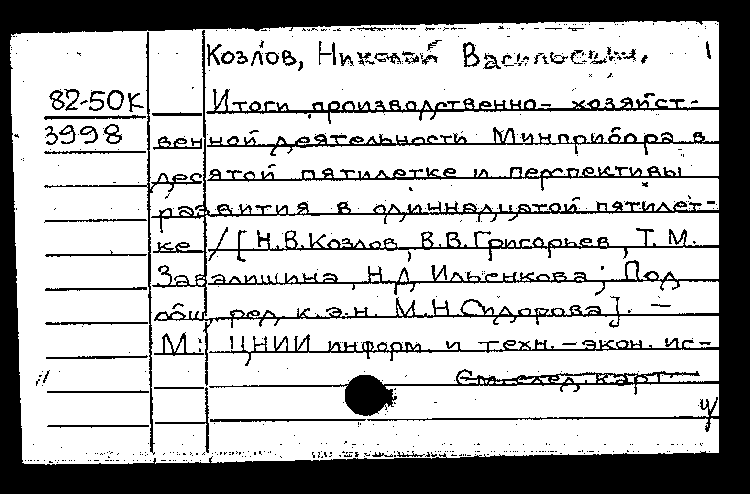 Козлов, Николай Васильевич. 1
82-50К Итоги производственно-хозяйст-
3998 венной деятельности Минприбора в
десятой пятилетке и перспективы
развития в одиннадцатой пятилет-
ке / [Н.В.Козлов, В.В.Григорьев, Т.М.
Завалишина, Н.Д. Ильенкова; Под
общ. ред. к.э.н. М.Н.Сидорова]. —
М.: ЦНИИ информ. и техн.-экон. ис-
См. след. карт